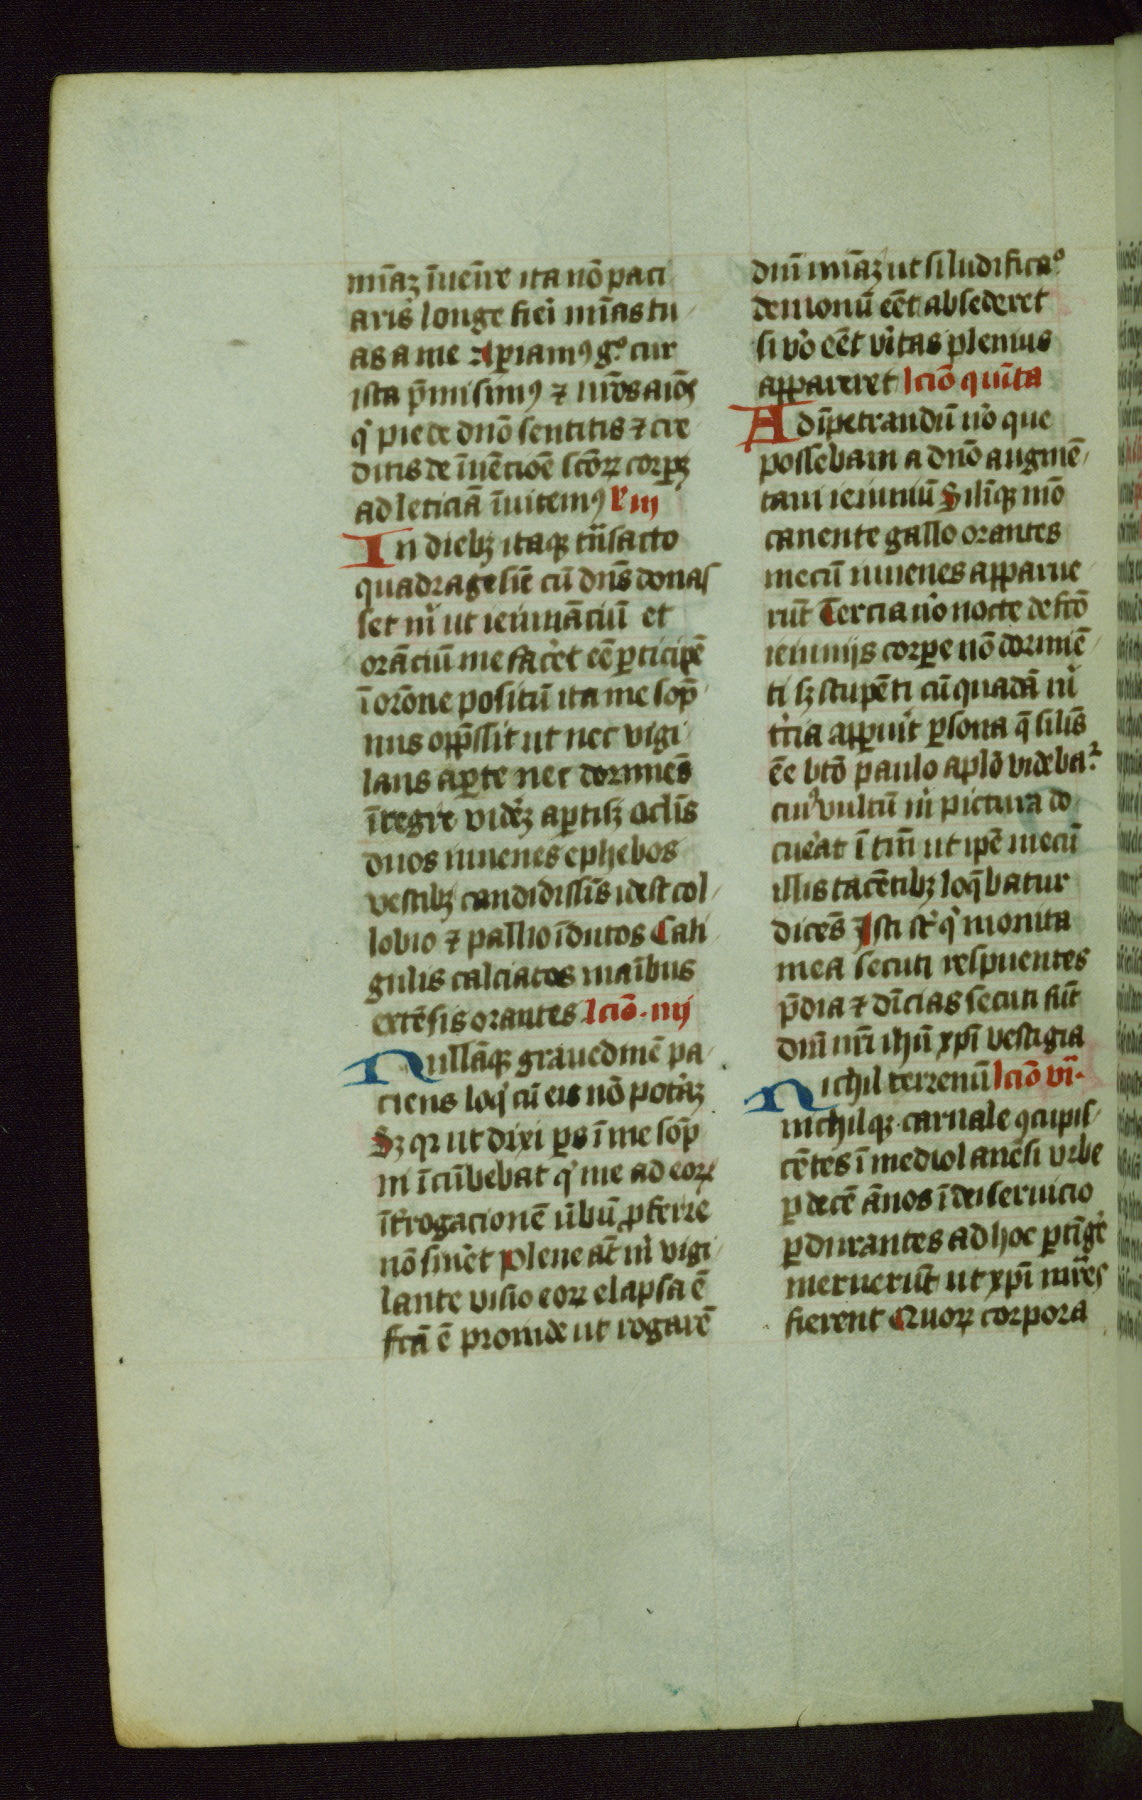 mīaʒ īueūre ita nō paci
aris longe fieri mīas tu
as a me Aꝑiamꝯ gͦ cur
ista p̄misimꝯ ⁊ ur̄os aīos
qͥ pie de dnō sentitis ⁊ cre
ditis de īuēcioē sc̄oꝝ corꝑꝝ
ad leticiā īuitemꝯ R iij
In diebꝫ itaqꝫ tn̄sacto
quadragesie cū dn̄s donas
set m̄ ut ieiunāciū et
orāciū me fac̄et eē ꝑticipē
ī orōne positū ita me sop̄
nus opp̄ssit ut nec vigi
lans aꝑte nec dormiēs
ītegre vidēʒ aꝑtisꝫ oclīs
duos iuuenes ephebos
vestibꝫ candidissīs id est col
lobio ⁊ pallio īdutos Cali
gulis calciatos maībus
extēsis orantes lcīo. iiij
Nullāqꝫ grauedinē pa
ciens loqͥ cū eis nō pot̄aʒ
Sꝫ qꝛ ut dixi ꝑs ī me sop̄
ni īcūbebat qͥ me ad eoꝝ
īt̄rogacionē ūbū ꝓferre
nō sin̄et Plene at̄ m̄ vigi
lante visio eoꝝ elapsa ē
fc̄ā ē proinde ut rogarē
dnī mīaʒ ut si ludificaͦ
demonū eēt absederet
si ūo eēt v̄itas plenius
appareret lcīo quīta
Ad īpetrandū ūo que
possebam a dnō augmē
taui ieiuniū Silīqꝫ mō
canente gallo orantes
mecū iuuenes apparue
rūt Tercia ūo nocte defcō
ieiunijs corꝑe nō dormiē
ti sꝫ stupēti cū quadā m̄
t̄cia apparuit ꝑsona q̄ silīs
eē btō paulo aplō videbaꝛ
cuiꝯ vultū m̄ pictura do
cuerat ī tm̄ ut ipē mecū
illis tacētibꝫ loq̄batur
dicēs Isti sͭ qͥ monita
mea secuti respuentes
p̄dia ⁊ diūcias secuti sūt
dnī nrī ihū xpī vestigia
Nichil terrenū lcīo vī.
nichilqꝫ carnale ꝯcupis
cētes ī mediolanēsi vrbe
ꝑ decē ānos ī dei seruicio
ꝑdurantes ad hoc ꝑtīge
meruerūt ut xpī mr̄es
fierent Quoꝝ corpora